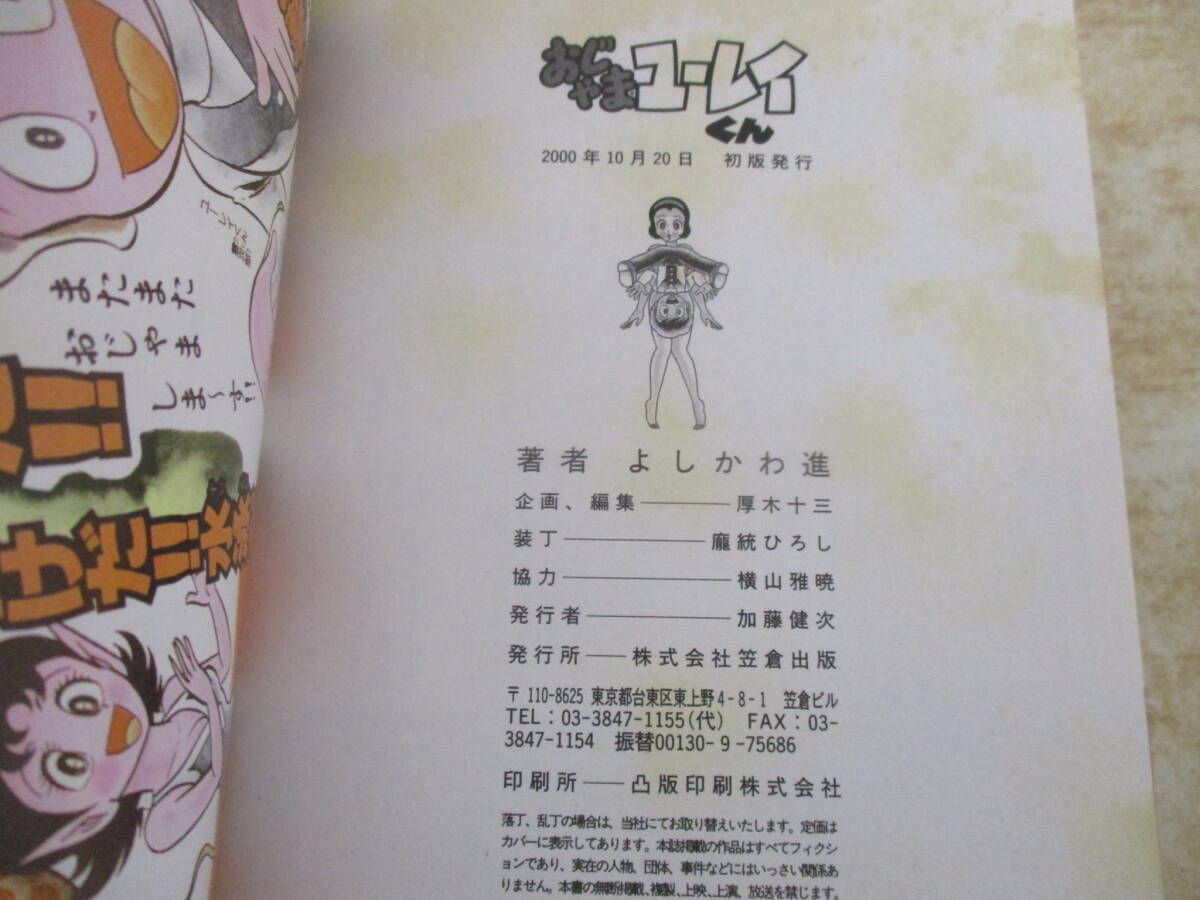 まだまだ
おじゃま
しま〜す!
!!
けだ!!水
おじゃまユーレイくん
2000年10月20日 初版発行
著者 よしかわ進
企画、編集――厚木十三
装丁――龐統ひろし
協力――横山雅暁
発行者――加藤健次
発行所――株式会社笠倉出版
〒110-8625 東京都台東区東上野4-8-1 笠倉ビル
TEL:03-3847-1155(代) FAX:03-
3847-1154 振替00130-9-75686
印刷所――凸版印刷株式会社
落丁、乱丁の場合は、当社にてお取り替えいたします。定価は
カバーに表示してあります。本誌掲載の作品はすべてフィクシ
ョンであり、実在の人物、団体、事件などにはいっさい関係あ
りません。本書の無断掲載、複製、上映、上演、放送を禁じます。